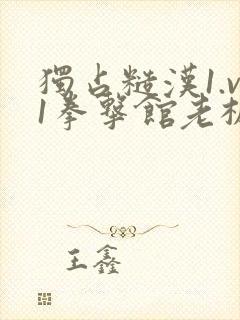 獨占糙漢1.v
1拳擊館老板
王鑫